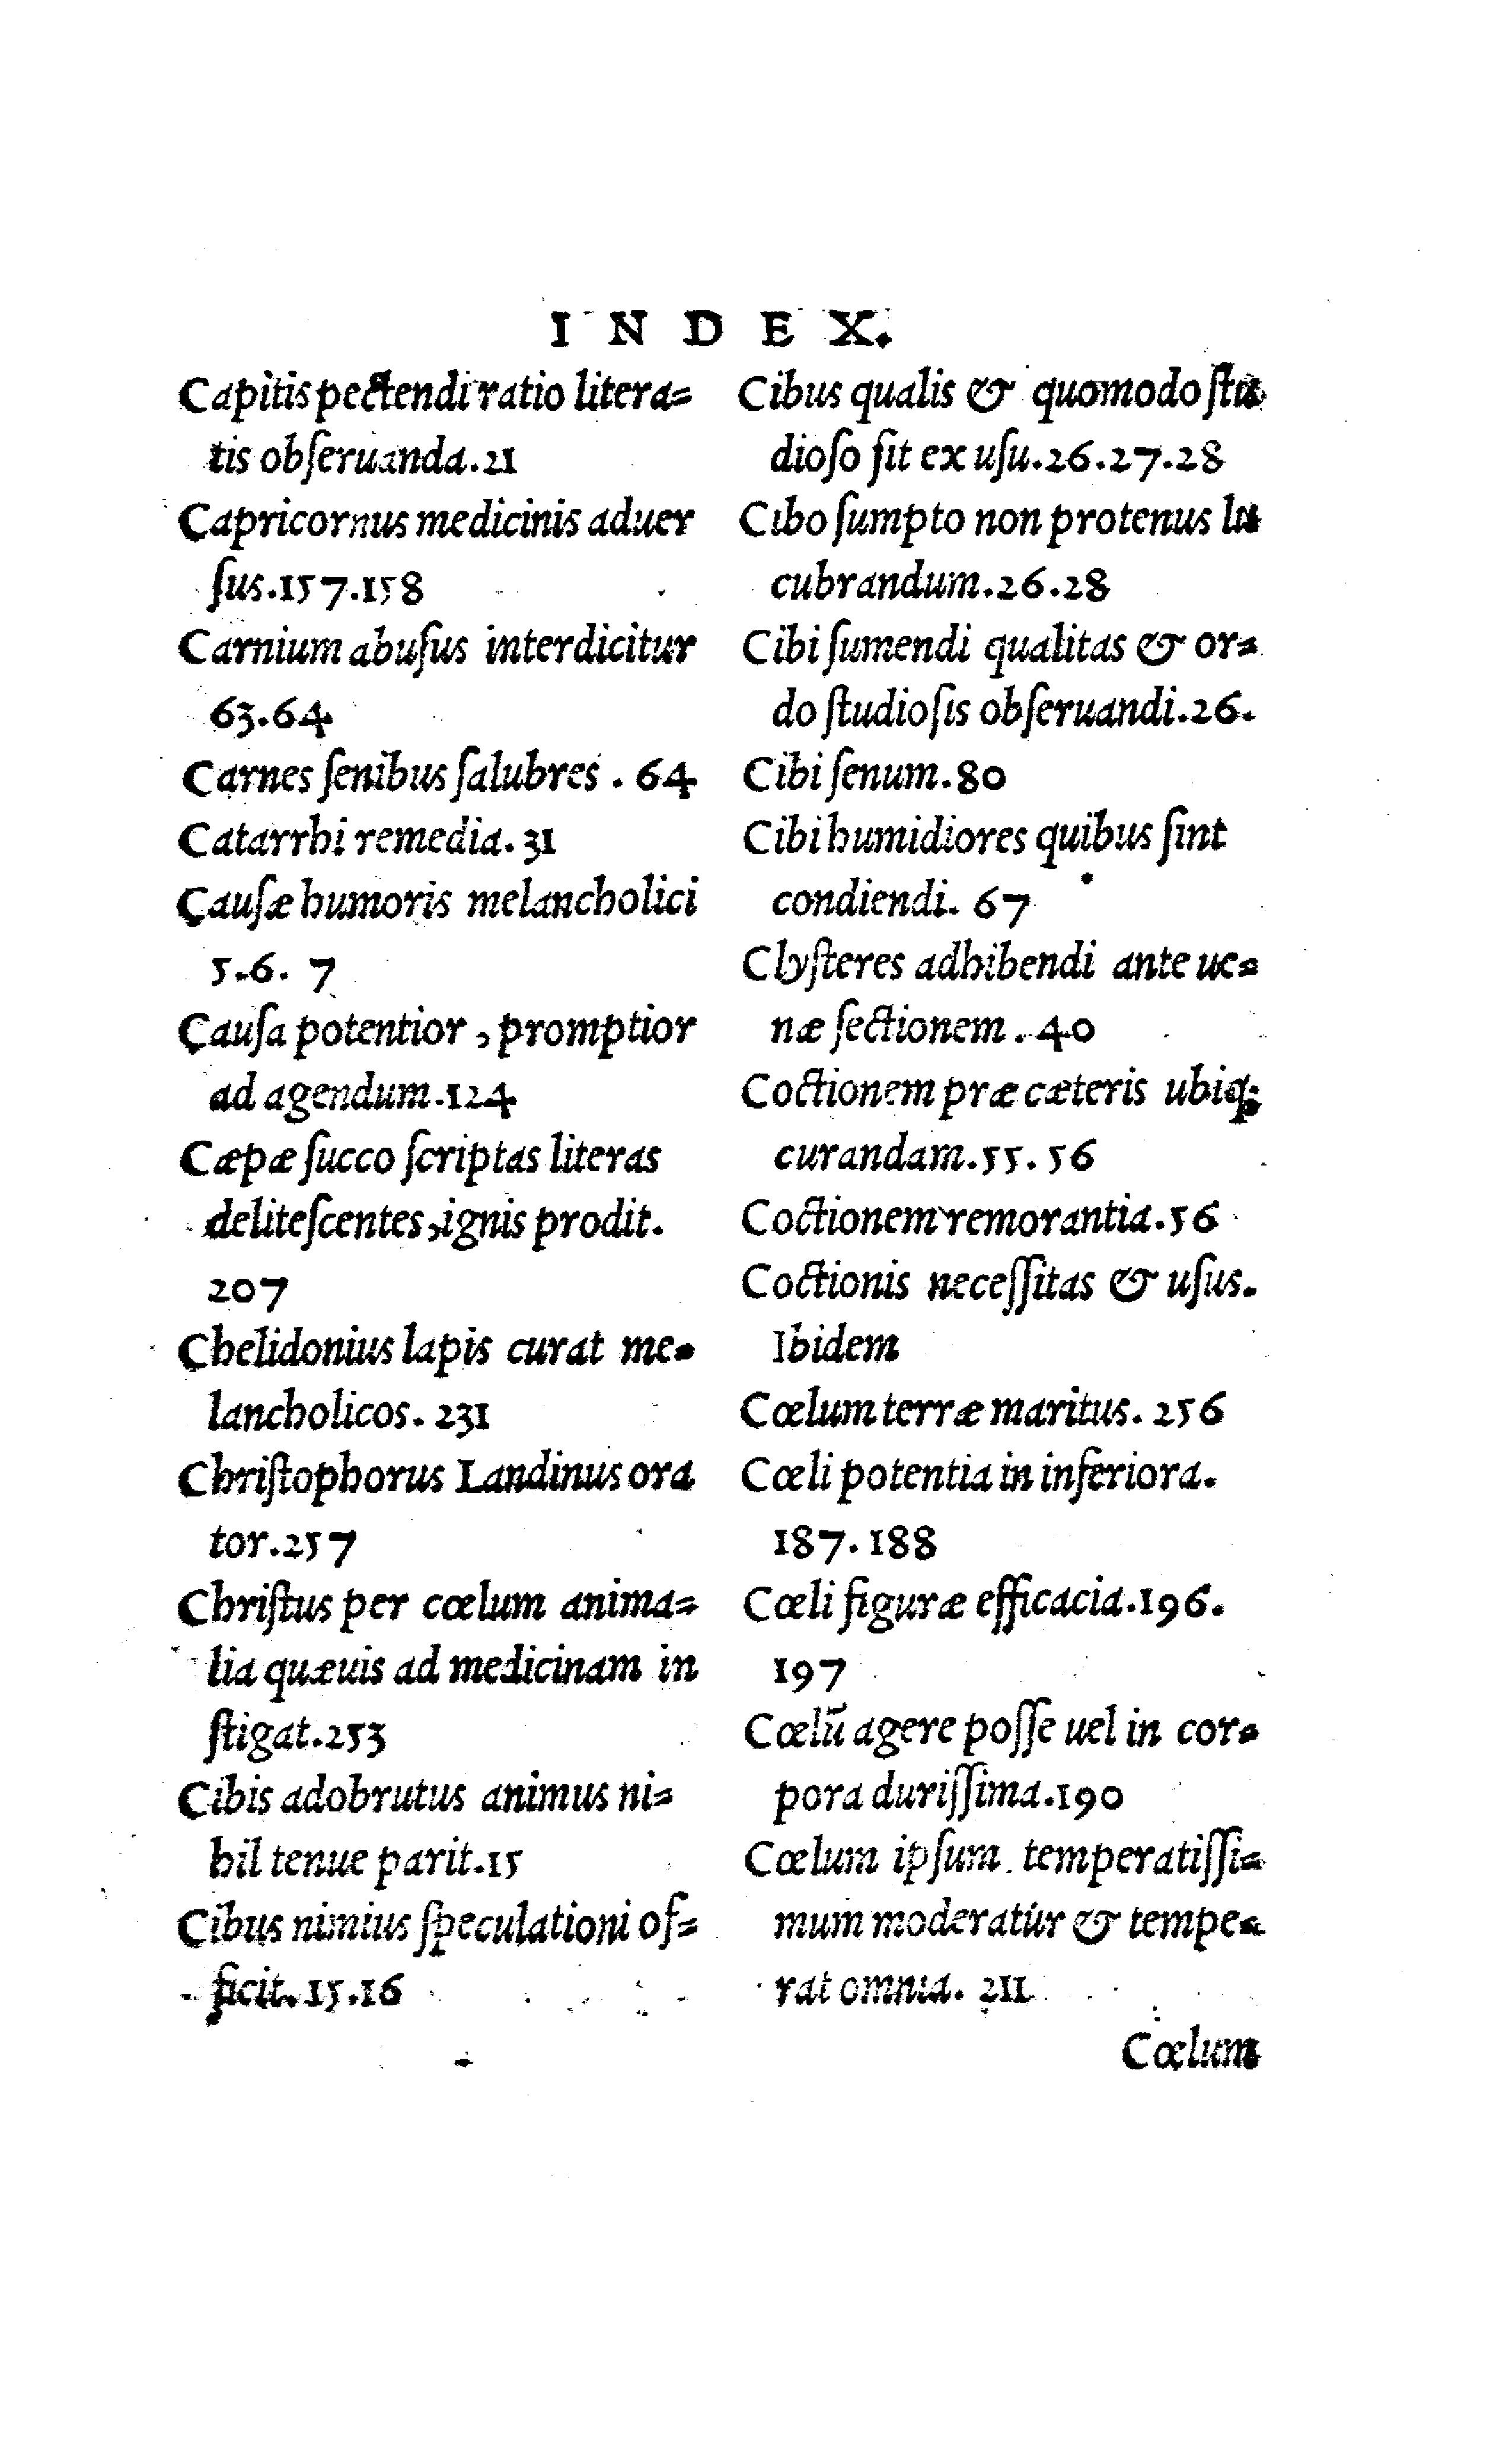 INDEX.
Capitis pectendi ratio litera=
tis obſeruanda.21
Capricornus medicinis aduer
ſus.157.158
Carnium abuſus interdicitur
63.64
Carnes ſenibus ſalubres . 64
Catarrhi remedia. 31
Cauſæ humoris melancholici
5.6. 7
Cauſa potentior , promptior
ad agendum.124
Cæpæ ſucco ſcriptas literas
deliteſcentes, ignis prodit.
207
Chelidonius lapis curat me=
lancholicos. 231
Chriſtophorus Landinus ora
tor.257
Chriſtus per cœlum anima=
lia quæuis ad medicinam in
ſtigat.253
Cibis adobrutus animus ni=
hil tenue parit.15
Cibus nimius ſpeculationi of=
ficit.15.16
Cibus qualis & quomodo ſtu
dioſo ſit ex uſu.26.27.28
Cibo ſumpto non protenus lu
cubrandum.26.28
Cibi ſumendi qualitas & or=
do ſtudioſis obſeruandi.26.
Cibi ſenum.80
Cibi humidiores quibus ſint
condiendi. 67
Clyſteres adhibendi ante ue=
næ ſectionem . 40
Coctionem præ cæteris ubiq;
curandam.55.56
Coctionem remorantia.56
Coctionis neceſſitas & uſus.
Ibidem
Cœlum terræ maritus. 256
Cœli potentia in inferiora.
187.188
Cœli figuræ efficacia.196.
197
Cœlū agere poſſe uel in cor=
pora duriſſima.190
Cœlum ipſum temperatiſſi=
mum moderatur & tempe=
rat omnia. 211
Cœlum